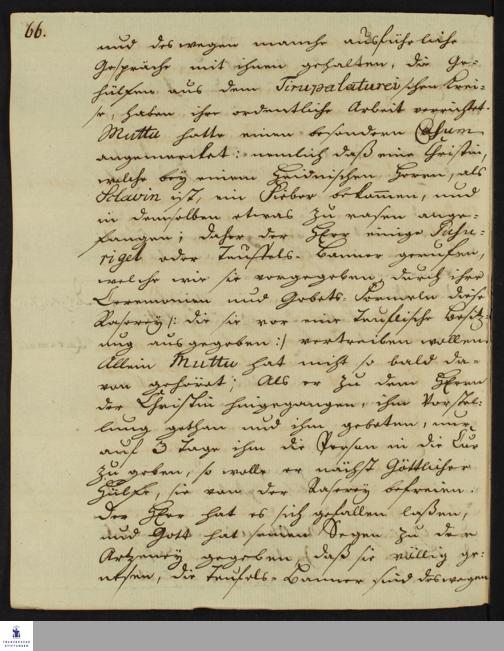 66.
und deswegen manche ausführliche
Gespräche mit ihnen gehalten, die Ge-
hülfen aus dem Tirupalatureischen Krei-
se, haben ihre ordentliche Arbeit verrichtet.
Muttu hatte einen besondern Casum
angemercket: nemlich daß eine Christin,
welche bey einem Heidnischen Herrn, als
Sclavin ist, ein Fieber bekommen, und
in demselben etwas zu rasen ange-
fangen; daher der Herr einige Puschu-
riget oder Teuffels-Banner geruffen,
welche wie sie vorgegeben, durch ihre
Ceremonien und Gebets-Formeln diese
Raserey /: die sie vor eine Teuflische Besitz-
ung ausgegeben :/ vertreiben wollen.
Allein Muttu hat nicht so bald da-
von gehöret; Als er zu dem Herrn
der Christin hingegangen, ihm Vorstel-
lung gethan und ihm gebeten, nur
auf 3 Tage ihm die Person in die Cur
zu geben, so wolle er nächst Göttlicher
Hülfe, sie von der Raserey befreien.
Der Herr hat es sich gefallen laßen,
und Gott hat seinen Segen zu der
Artzeney gegeben, daß sie völlig ge-
nesen, die Teufels-Banner sind deswegen
FRANCKESCHE
STIFTUNGEN